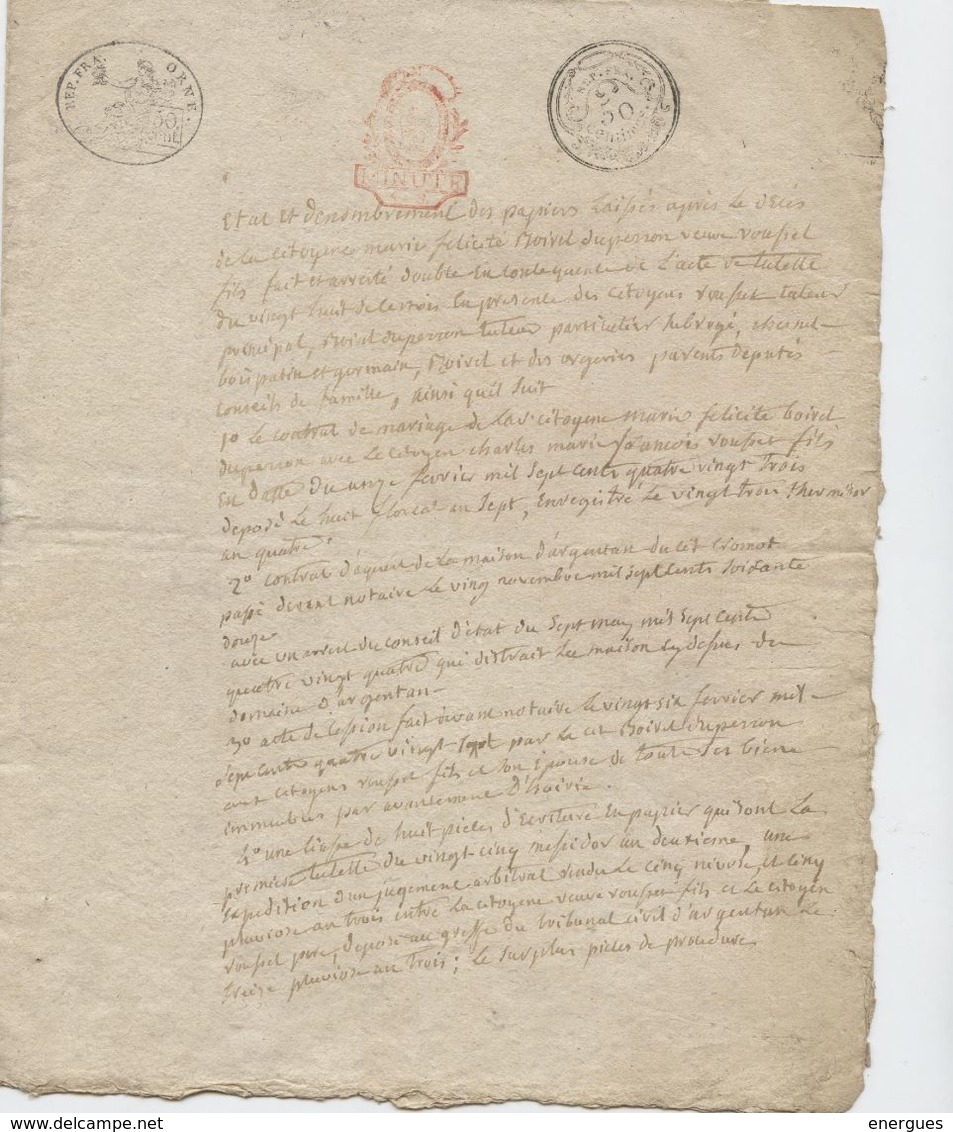 REP. FRA. ORNE.
50
cent.
MINUTE
REP. FRA.
50
Centimes
Etat et denombrement des papiers Laissés apres Le décés
de la Citoyene marie felicité Boirel duperron veuve roussel
fils fait et arreté double En Consequence de L'acte de tutelle
du vingt huit de ce mois En presence des Citoyens roussel tuteur
principal, Boirel duperron tuteur particulier subrogé, chesnel-
bois patin et germain, Boirel et des orgeries parents deputés
Conseils de famille, ainsi quil suit
1º Le contrat de mariage de La dte Citoyene marie felicité boirel
duperron avec Le Citoyen charles marie francois roussel fils
En datte du onze fevrier mil sept cents quatre vingt trois
deposé Le huit floreal an sept, Enregistré Le vingt trois thermidor
an quatre.
2º contrat d'aquest de La maison d'argentan du cit Cromot
passé devant notaire Le vingt novembre mil sept cents soixante
douze
avec un arrest du conseil d'état du sept may mil sept cents
quatre vingt quatre qui distrait La maison cy dessus du
domaine d'argentan-
3º acte de Cession fait devant notaire Le vingt six fevrier mil-
sept cents quatre vingt sept par Le cit Boirel duperron
aux Citoyens roussel fils et son Epouse de toute ses biens
immeubles par avancement d'hoirie.
4º une Liasse de huit pieces d'Ecriture En papier qui sont La
premiere tutelle du vingt-cinq messidor an deuxieme, une
Expedition d'un jugement arbitral rendu Le cinq nivose, et cinq
pluviose an trois entre La citoyene veuve roussel fils et Le citoyen
roussel pere, deposé au greffe du tribunal civil d'argentan Le
treize pluviose an trois; Le surplus pieces de procedures
energues